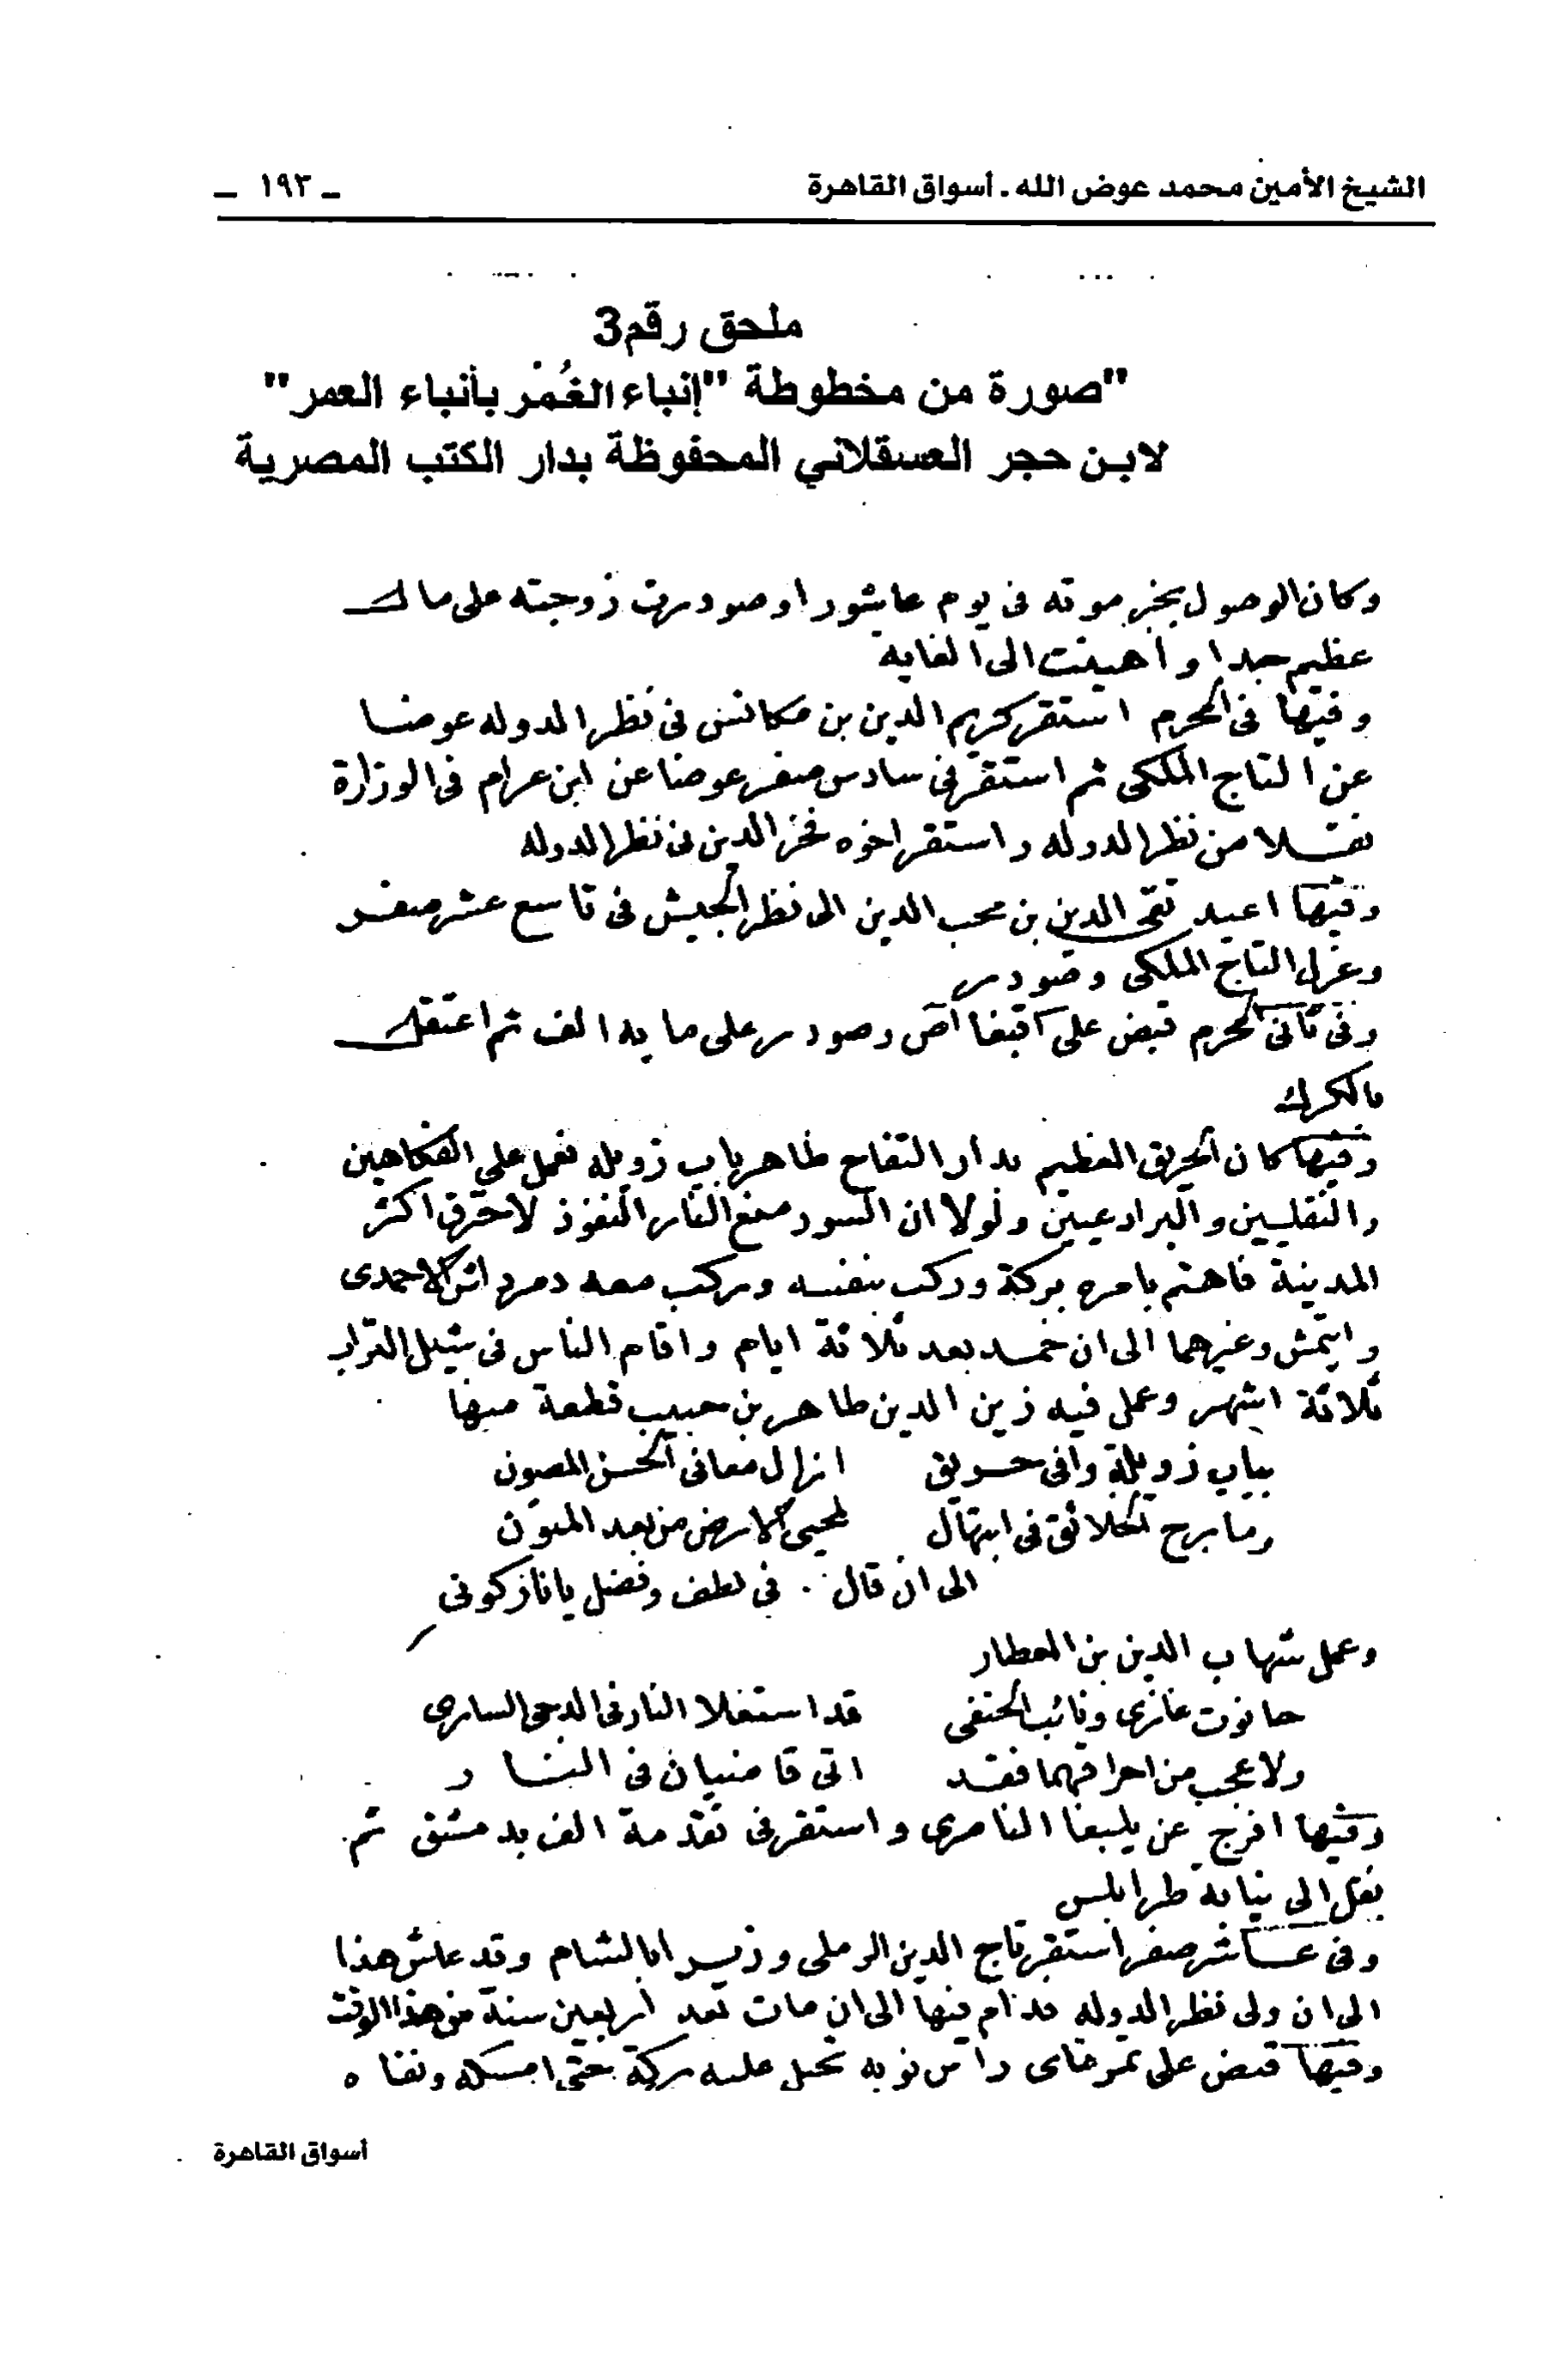 الشيخ الأمين محمد عوض الله . أسواق القاهرة
ـ ١٩٣ ـ
ملحق رقم 3
"صورة من مخطوطة "إنباء الغُمْر بأنباء العمر"
لابن حجر العسقلاني المحفوظة بدار الكتب المصرية
وكان الوصول بخبر موته فى يوم عاشورا وصودرت زوجته على مال
عظيم جدا واهينت الى الغاية
وفيها فى المحرم استقر كريم الدين بن مكانس فى نظر الدوله عوضا
عن التاج الملكى ثم استقر فى سادس صفر عوضا عن ابن عرام فى الوزارة
نقلا من نظر الدوله واستقر اخوه فخر الدين فى نظر الدوله
وفيها اعيد تقى الدين بن محب الدين الى نظر الجيش فى تاسع عشر صفر
وعزل التاج الملكى وصودر
وفى ثانى المحرم قبض على اقبغا آص وصودر على مايه الف ثم اعتقل
بالكرك
وفيها كان الحريق العظيم بدار التفاح ظاهر باب زويله فعمل على الفكاهين
والنقليين والبرادعيين ولولا ان السور منع النار النفوذ لاحترق اكثر
المدينة فاهتم بامره بركة وركب بنفسه وركب معه دمرداش الاحمدى
وايتمش وغيرهما الى ان خمد بعد ثلاثة ايام واقام الناس فى شيل التراب
ثلاثة اشهر وعمل فيه زين الدين طاهر بن حبيب قطعة منها
بباب زويلة وافى حريق ازال معانى الحسن المصون
وما برح الخلائق فى ابتهال لمحيى الارض من بعد المنون
الى ان قال . فى لطف وفضل يا نار كونى
وعمل شهاب الدين بن العطار
حانوت غازى ونائب الحنفى قد استغلا النار فى الدجى السارى
ولا عجب من احراقهما فقد اتى قاضيان فى النار
وفيها افرج عن يلبغا الناصرى واستقر فى تقدمة الف بدمشق ثم
نقل الى نيابة طرابلس
وفى عاشر صفر استقر تاج الدين الرملى وزيرا بالشام وقد عاش هذا
الى ان ولى نظر الدوله فدام فيها الى ان مات بعد اربعين سنة من هذا الوقت
وفيها قبض على تمرباى راس نوبه تحيل عليه بركة حتى امسكه ونفاه
أسواق القاهرة